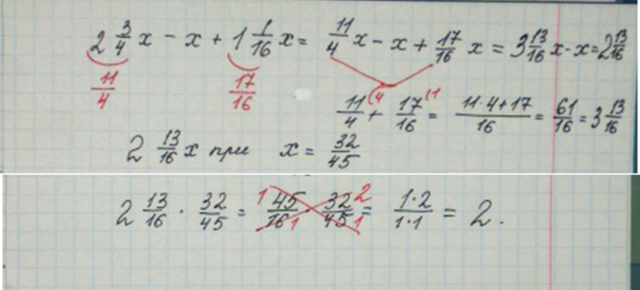 2 3/4 x - x + 1 1/16 x = 11/4 x - x + 17/16 x = 3 13/16 x - x = 2 13/16
11/4 17/16
11/4 (4 + 17/16 (1 = 11·4+17/16 = 61/16 = 3 13/16
2 13/16 x при x = 32/45
2 13/16 · 32/45 = 1 45/16 1 · 32 2/45 1 = 1·2/1·1 = 2.